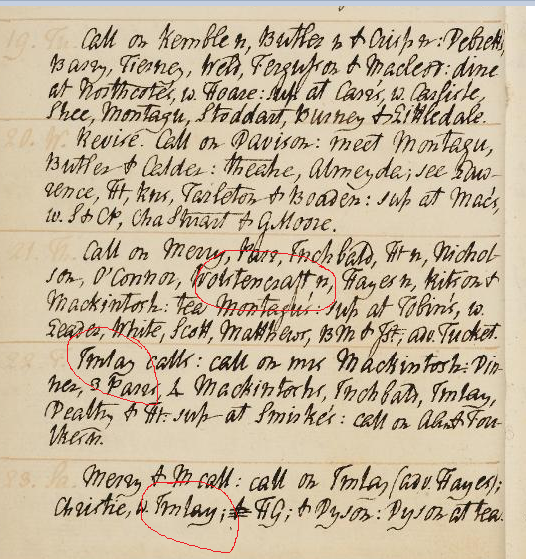 19. Tu. Call on Kemble n, Butler n & Crisp n: Debrett,
Barry, Tierney, Weld, Fergusson & Macleod: dine
at Northcote's, w. Hoare: sup at Carrs, w. Carlisle,
Shee, Montagu, Stoddart, Burney & Littledale.
20. W. Revise. Call on Davison: meet Montagu,
Butler & Calder: theatre, Almeyda; see Law-
rence, Ht, Kns, Tarleton & Boaden: sup at Mac's,
w. S & CP, cha Stuart & G Moore.
21. Call on Merry, Parr, Inchbald, Ht n, Nichol-
son, O'Connor, Wolstencraft n, Hayes n, Kitson &
Mackintosh: tea Montagu's: sup at Tobin's, w.
Leader, White, Scott, Matthews, BM & adv. Tucket
22. Imlay calls: call on mrs Mackintosh: Din-
ner, 3 Parrs, 2 Mackintoshs, Inchbald, Imlay,
& Ht: sup at Smirke's: call on
23. Sa. Merry & M call: call on Imlay (adv. Hayes);
Christie, w. Imlay; HG; & Dyson: Dyson at tea.